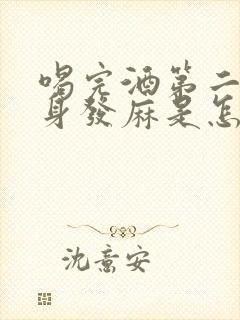 喝完酒第二
身發麻是怎
沈意安